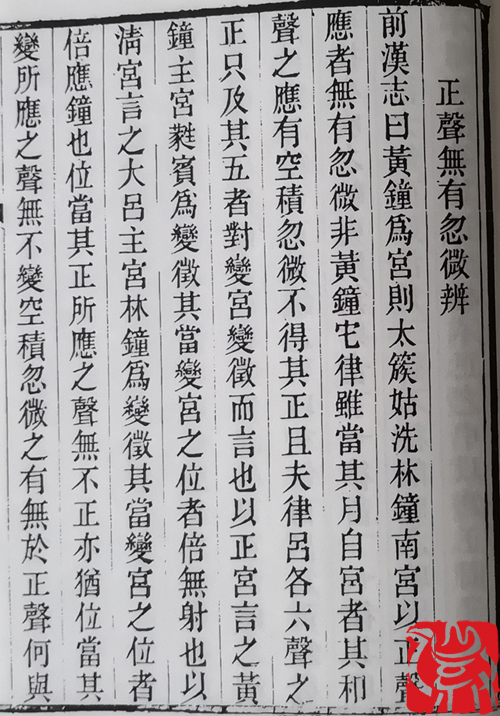 正聲無有忽微辨
前漢志曰黃鐘爲宮則太簇姑洗林鐘南宮以正聲
應者無有忽微非黃鐘宅律雖當其月自宮者其和
聲之應有空積忽微不得其正且夫律呂各六聲之
正只及其五者對變宮變徵而言也以正宮言之黃
鐘主宮蕤賓爲變徵其當變宮之位者倍無射也以
淸宮言之大呂主宮林鐘爲變徵其當變宮之位者
倍應鐘也位當其正所應之聲無不正亦猶位當其
變所應之聲無不變空積忽微之有無於正聲何與